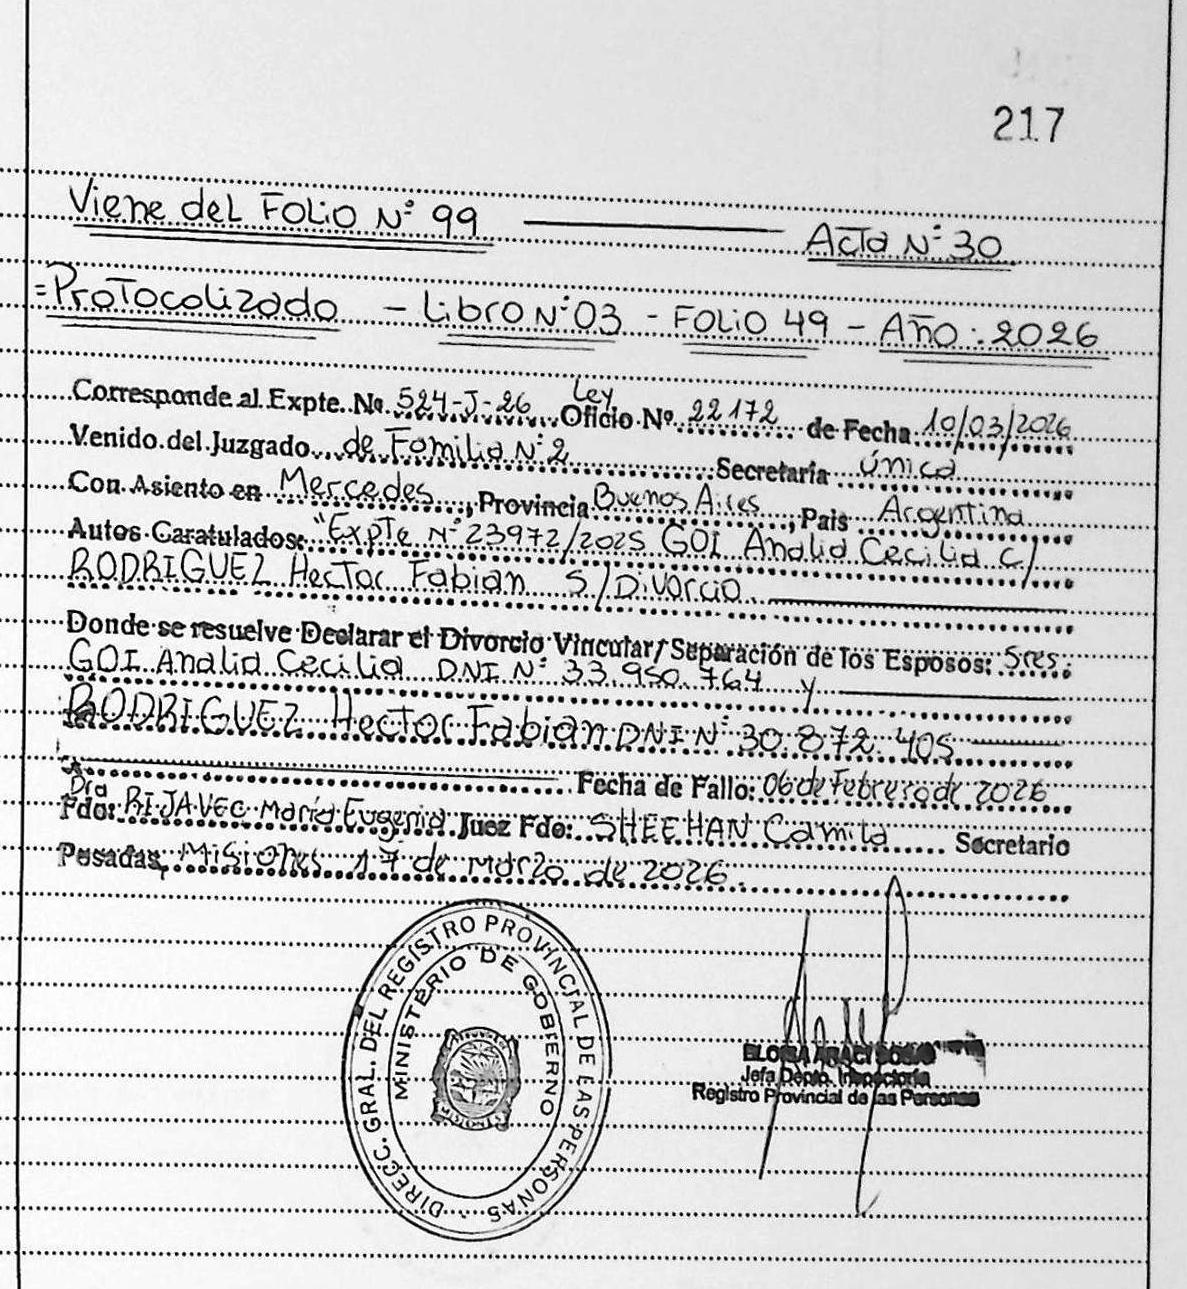 217
Viene del Folio N° 99 Acta N° 30
=Protocolizado - Libro N° 03 - Folio 49 - Año: 2026
Ley
Corresponde al Expte. Nº 524-J-26 Oficio Nº 22172 de Fecha 10/03/2026
Venido del Juzgado de Familia N° 2 Secretaria única
Con Asiento en Mercedes, Provincia Buenos Aires, Pais Argentina
Autos Caratulados: "Expte N° 23972/2025 GOI Analia Cecilia C/
RODRIGUEZ Hector Fabian S/Divorcio
Donde se resuelve Declarar el Divorcio Vincular/Separación de los Esposos: Sres.
GOI Analia Cecilia DNI N° 33.950.764 y
RODRIGUEZ Hector Fabian DNI N° 30.872.405
Fecha de Fallo: 06 de Febrero de 2026
Dra
Fdo: BIJAVEC María Eugenia Juez Fdo: SHEEHAN Camila Secretario
Posadas, Misiones 17 de Marzo de 2026.
DIRECC. GRAL. DEL REGISTRO PROVINCIAL DE LAS PERSONAS
MINISTERIO DE GOBIERNO
ARACI
Jefa Depto. Inspectoria
Registro Provincial de las Personas